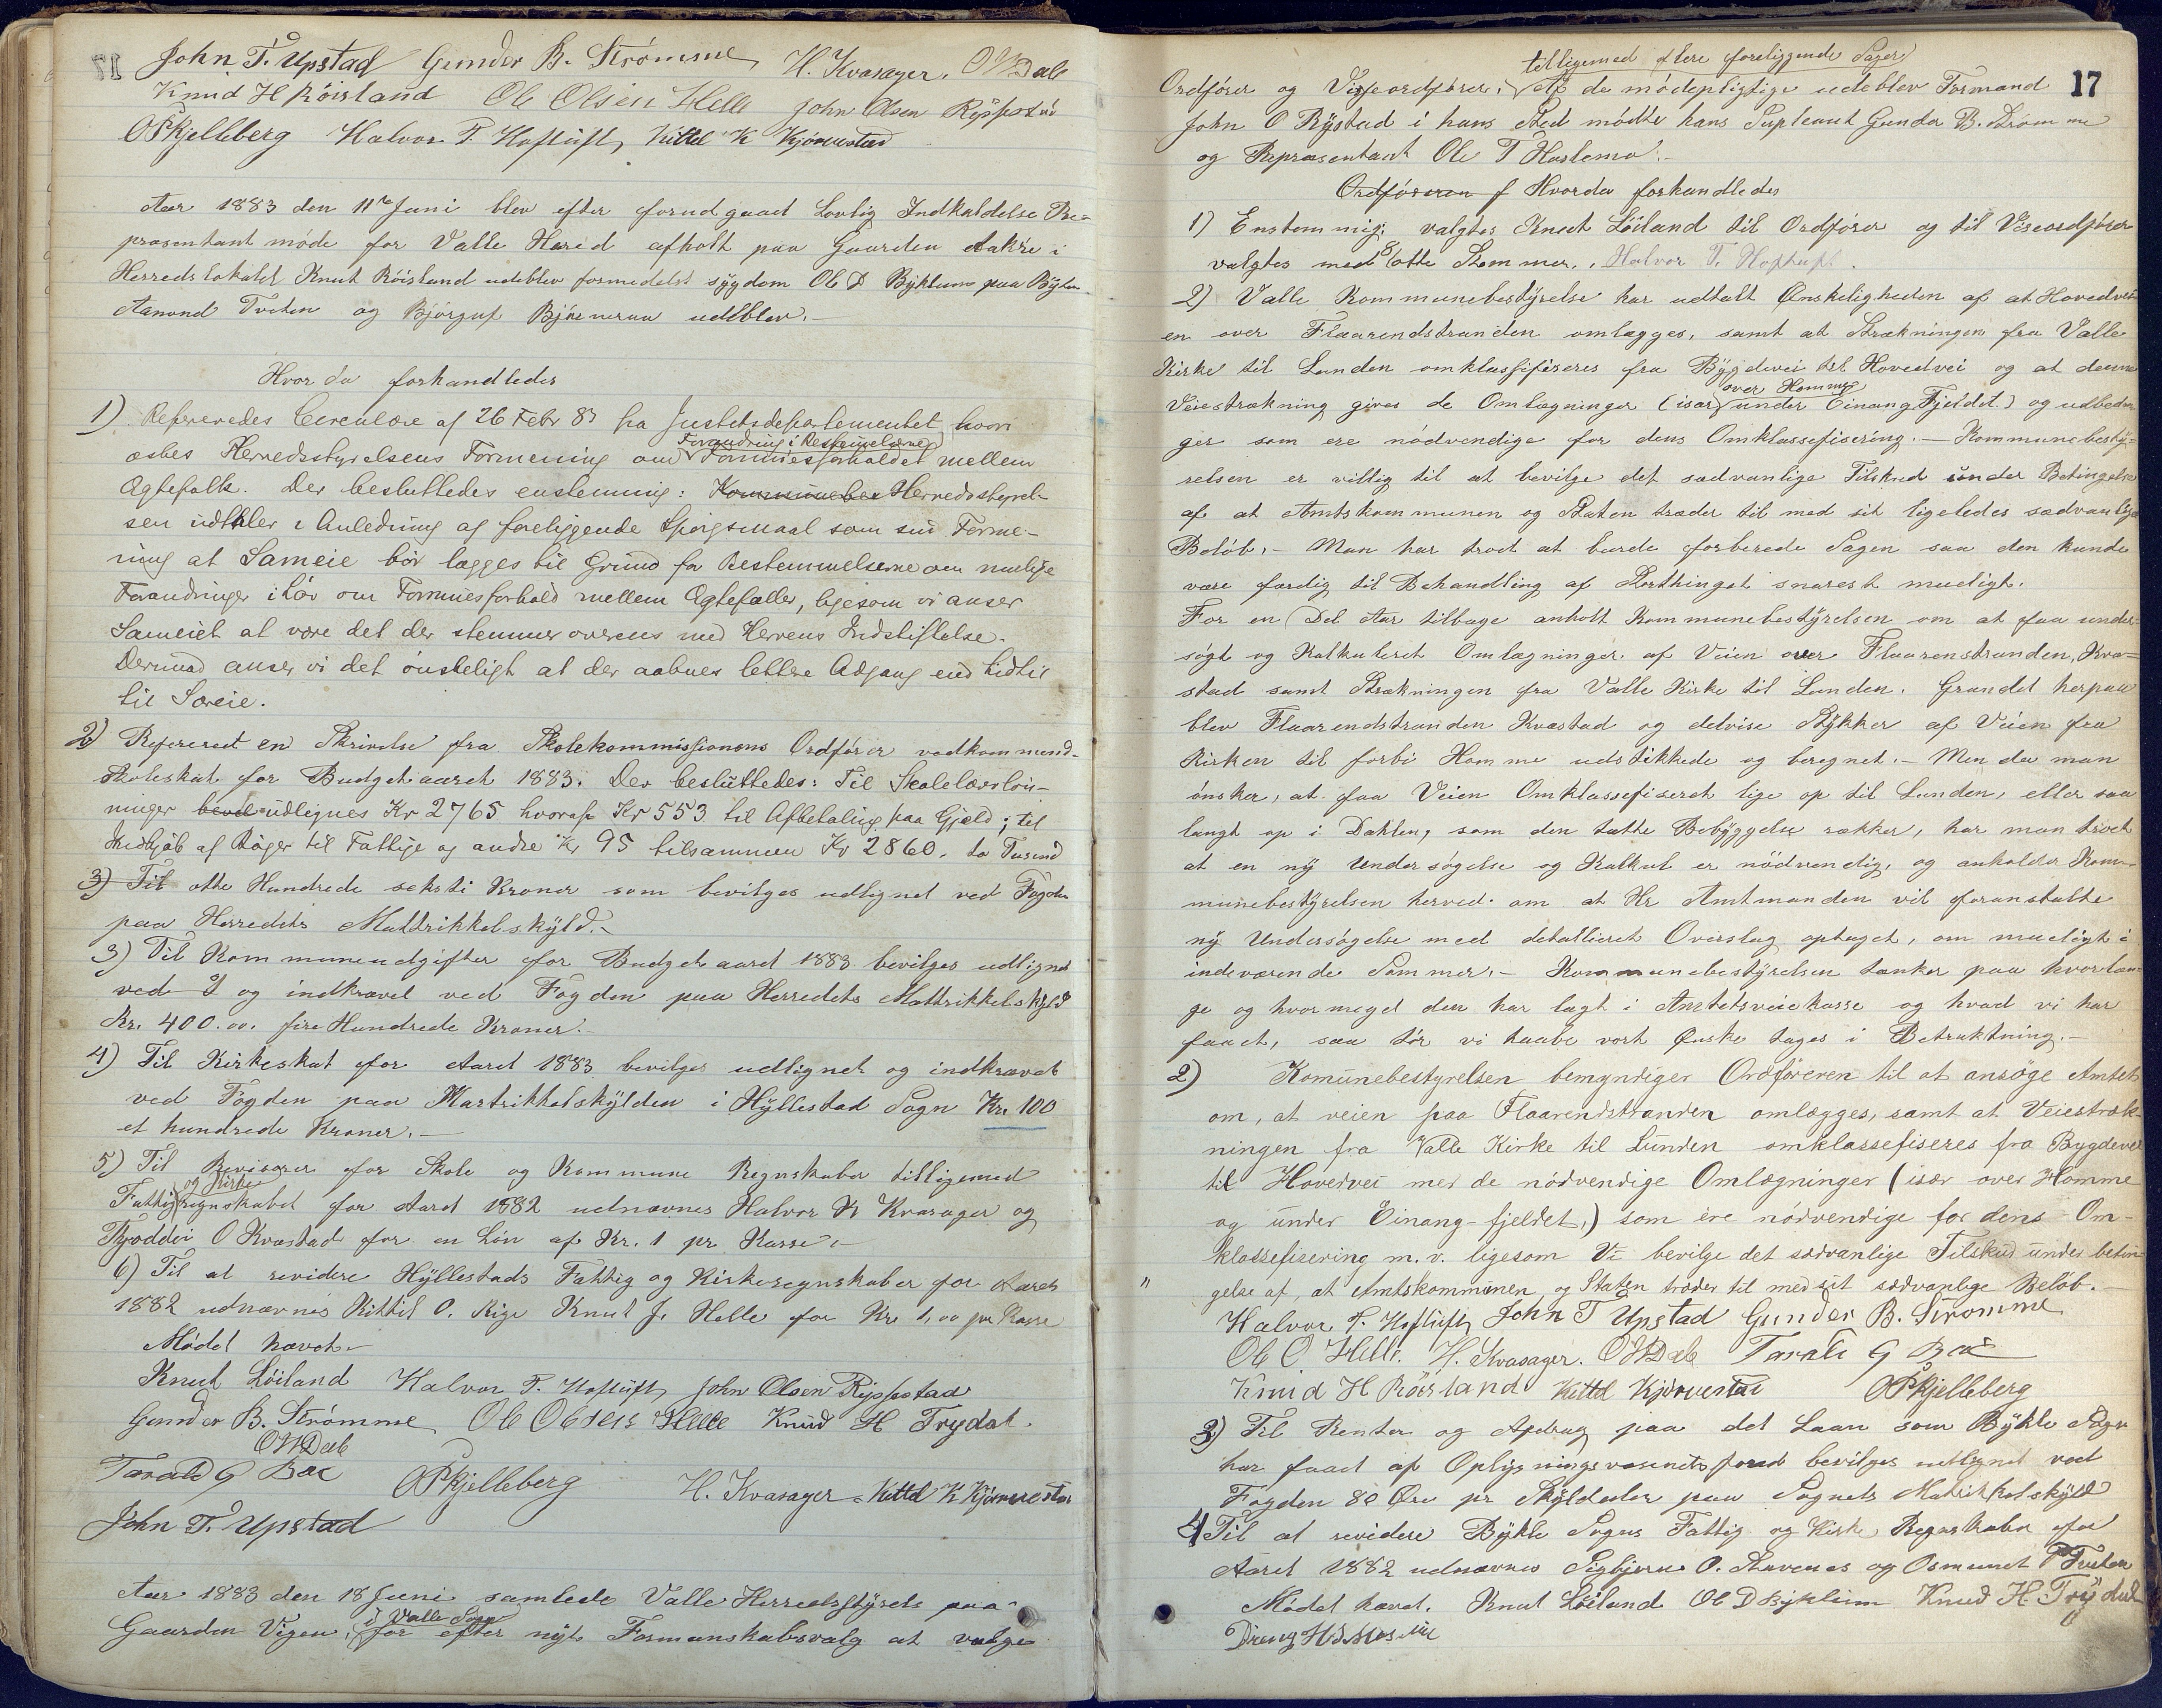 John T. Upstad Gunder B. Strömme H. Kvasager. O N Dale
Knud H Röisland Ole Olsen Helle John Olsen Rysstad
O P Kjelleberg Halvor T. Hoftuft, Kittel K Kjörvestad
Aar 1883 den 11te Juni blev efter forudgaaet Lovlig Indkaldelse Re-
præsentantmöde for Valle Herred afholt paa Gaarden Aakre i
Herredslokalet Knut Röisland udeblev formedelst sygdom Ole D Byklum paa Bygten
Aanond Tveten og Björguf Björneraa udeblev.-
Hvor da forhandledes
1) Refereredes Circulære af 26 Febr 83 fra Justitsdepartementet hvori
æskes Herredsstyrelsens Formening om Forandring i Bestemmelserne Formuesforholdet mellem
Ægtefolk. Der besluttedes enstemmig: Kommunebe Herredsstyrel-
sen udtaler i Anledning af foreliggende Spörgsmaal som sin Forme-
ning at Sameie bör lægges til Grund for Bestemmelserne om mulige
Forandringer i Lov om Formuesforhold mellem Ægtefæller, ligesom vi anser
Sameiet at være det der stemmer overens med Herrens Indstiftelse.
Derimod anser vi det önskeligt at der aabnes lettere Adgang end hidtil
til Særeie.
2) Refereret en Skrivelse fra Skolekommissionens Ordförer vedkommend-
Skoleskat for Budgetaaret 1883. Der besluttedes: Til Skolelærerlön-
ninger bevil udlignes Kr 2765 hvoraf Kr 553 til Afbetaling paa Gjæld; til
Indkjöb af Böger til Fattige og andre Kr 95 tilsammen Kr 2860. to Tusend
3) Til otte Hundrede seksti Kroner som bevilges udlignet ved Fogden
paa Herredets Mattrikkelskyld.-
3) Til Kommuneudgifter for Budgetaaret 1883 bevilges udlignet
ved I og indkrævet ved Fogden paa Herredets Mattrikkelskyld
Kr. 400.00. fire Hundrede Kroner.-
4) Til Kirkeskat for Aaret 1883 bevilges udlignet og indkrævet
ved Fogden paa Martrikkelskylden i Hyllestad Sogn Kr. 100
et hundrede Kroner.-
5) Til Revisorer for Skole og Kommune Regnskaber tilligemed
Fattig og Kirke regnskabet for Aaret 1882 udnævnes Halvor N Kvasager og
Tjoddér O Kvæstad for en Lön af Kr. 1 pr Kasse.-
6) Til at revidere Hyllestads Fattig og Kirkeregnskaber for Aaret
1882 udnævnes Kittil O. Rige Knut J. Helle for Kr 1,00 pr Kasse
Mödet hævet.-
Knut Löiland Halvor T. Hoftuft, John Olsen Rysstad
Gunder B. Strömme Ole Olsen Helle Knud H Trydal.
O N Dale
Tarald G Bæe O P Kjelleberg H. Kvasager Kittel K Kjörvestad
John T. Upstad
Aar 1883 den 18 Juni samlede Valle Herredsstyrele paa
Gaarden Vigen, i Valle Sogn for efter nyt Formanskabsvalg at vælge
17
tilligemed flere foreliggende Sager
Ordförer og Viseordförer, Af de mödepligtige udeblev Formand
John O Rystad i hans Sted mödte hans Supleant Gunder B. Strömme
og Repræsentant Ole T Haslemo.-
Ordföreren f Hvorda forhandledes
1) Enstemmig valgtes Knut Löiland til Ordförer og til Viseordförer
valgtes med 8 otte Stemmer., Halvor T. Hoftuft.
2) Valle Kommunebestyrelse har udtalt Ønskeligheden af at Hovedvei-
en over Flaarendstranden omlægges, samt at Strækningen fra Valle
Kirke til Lunden omklassifiseres fra Bygdevei til Hovedvei og at denne
Veiestrækning gives de Omlægninger (især over Homme under Einang Fjeldet) og udbedrin
ger som ere nödvendige for dens Omklassefisering.- Kommunebesty-
relsen er villig til at bevilge det sædvanlige Tilskud under Betingelse
af at Amtskommunen og Staten træder til med sit ligeledes sædvanlige
Belöb.- Man har troet at burde forberede Sagen saa den kunde
være færdig til Behandling af Storthinget snarest mueligt.
For en Del Aar tilbage anholt Kommunebestyrelsen om at faa under-
sögt og Kalkuleret Omlægninger af Veien over Flaarenstranden, Kvæ-
stad samt Strækningen fra Valle Kirke til Lunden. Grundet herpaa
blev Flaarendstranden Kvæstad og delvise Stykker af Veien fra
Kirken til forbi Homme udstikkede og beregnet.- Men da man
önsker, at faa Veien Omklassefiseret lige op til Lunden, eller saa
langt op i Dahlen, som den tætte Bebyggelse rækker, har man troet
at en ny Undersögelse og Kalkul er nödvendig, og anholder Kom-
munebestyrelsen herved om at Hr Amtmanden vil foranstalte
ny Undersögelse med detallieret Overslag optaget, om mueligt i
indeværende Sommer.- Kommunebestyrelsen tænker paa hvorlæn-
ge og hvormeget den har lagt i Amtetsveiekasse og hvad vi har
faaet, saa tör vi haabe vort Ønske tages i Betraktning.-
2) Komunebestyrelsen bemyndiger Ordföreren til at ansöge Amtet
om, at veien paa Flaarendstranden omlægges, samt at Veiestræk-
ningen fra Valle Kirke til Lunden omklassefiseres fra Bygdevei
til Hovedvei med de nödvendige Omlægninger (især over Homme
og under Einang-fjeldet,) som ere nödvendige for dens Om-
klassefisering m.v. ligesom Vi bevilge det sædvanlige Tilskud under betin
" gelse af, at Amtskommunen og Staten træder til med sit sædvanlige Belöb.-
Halvor T. Hoftuft, John T Upstad Gunder B. Strömme
Ole O. Helle. H. Kvasager. O N Dale Tarald G Bæe
Knud H Röisland Kittel Kjörvestad O P Kjelleberg
3) Til Renter og Afdrag paa det Laan som Bykle Sogn
har faaet af Oplysningsvæsenets fond bevilges udlignet ved
Fogden 80 Øre pr Skylddaler paa Sognets Matrikkelskyld
4 Til at revidere Bykle Sogns Fattig og Kirke Regnskaber for
Aaret 1882 udnævnes Sigbjörn O. Stavenes og Osmund Tveten
Mödet hævet. Knut Löiland Ole D Byklum Knud H. Trydal
Dreng